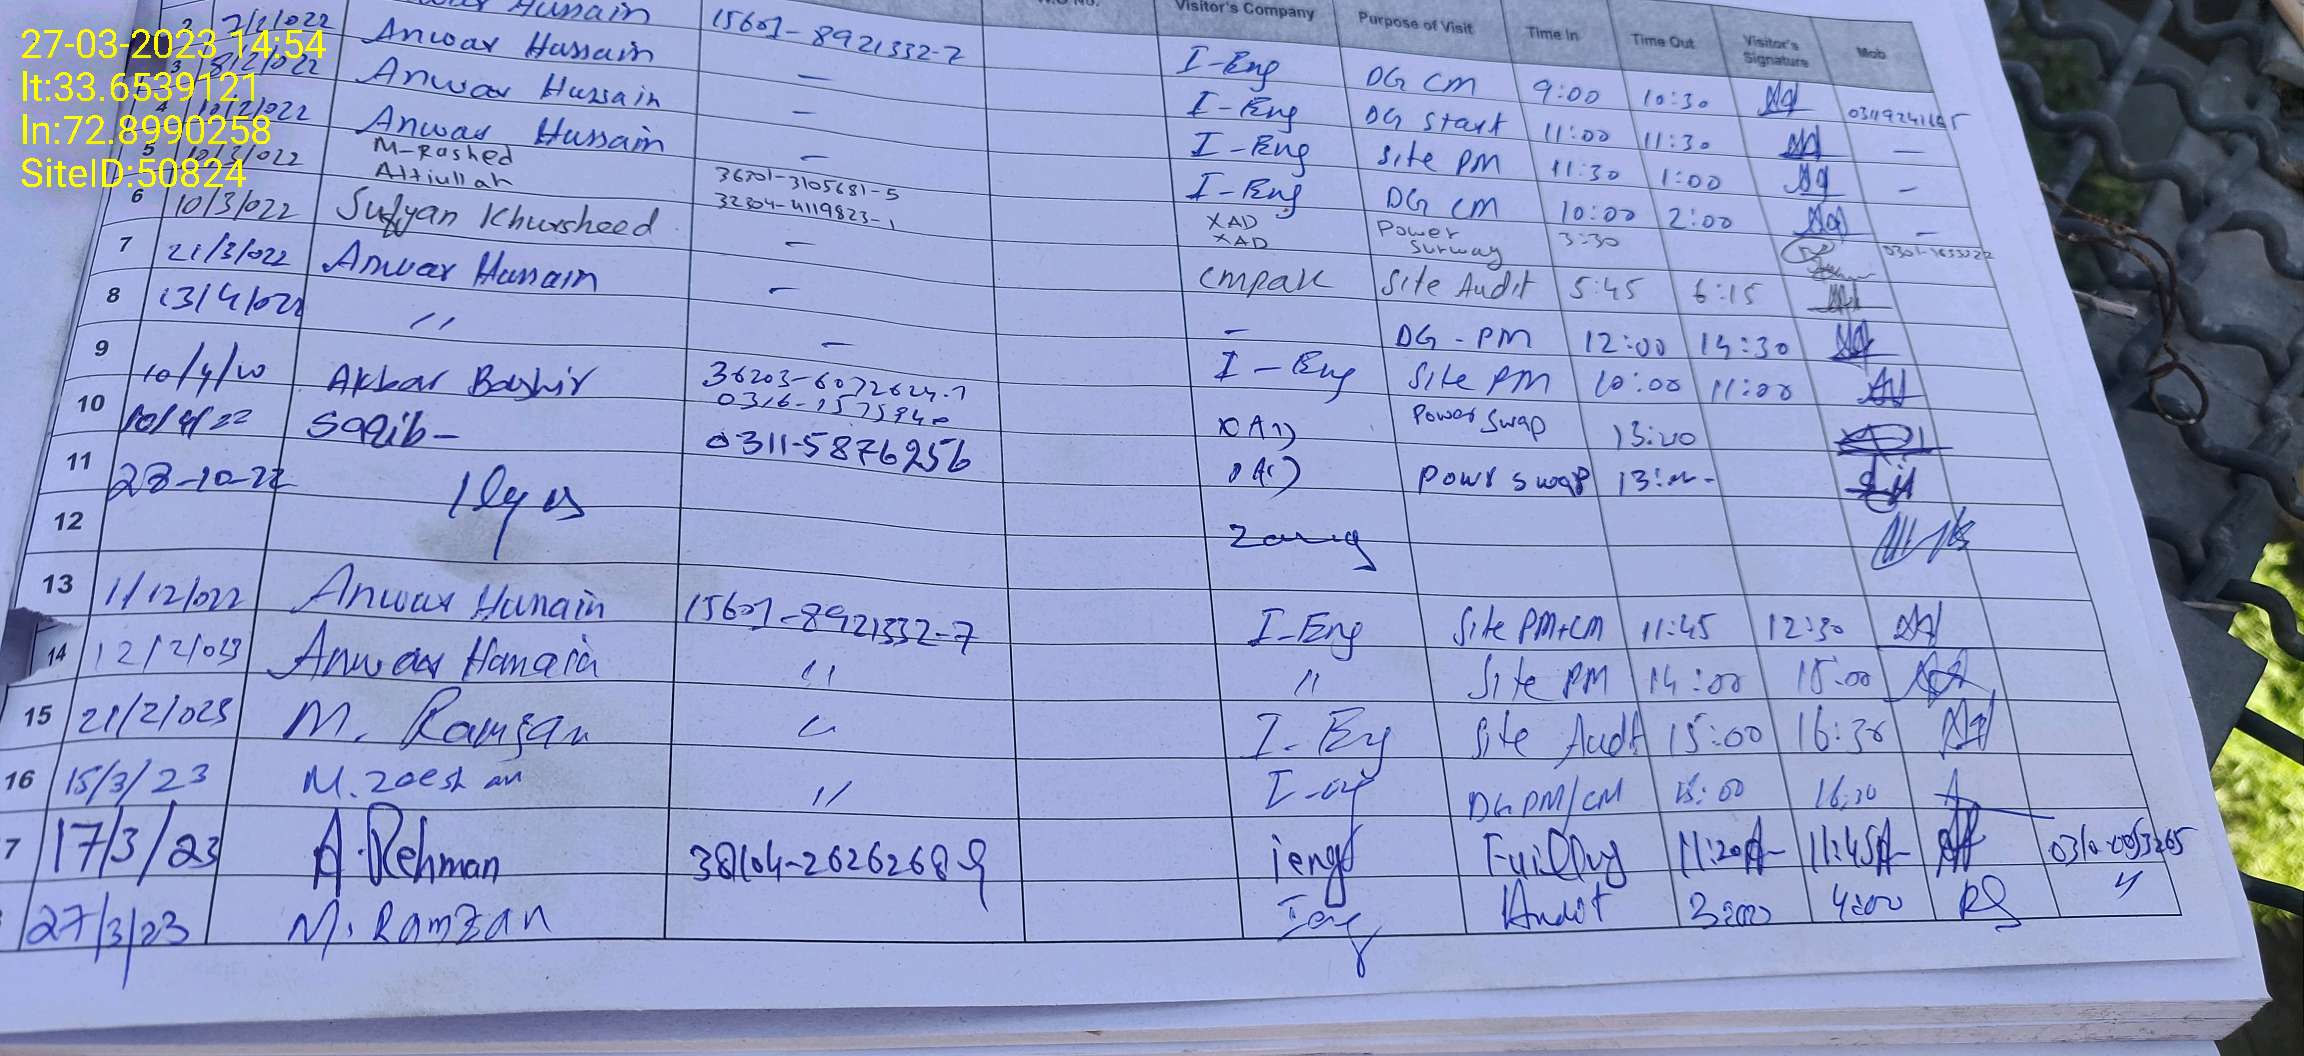 27-03-2023 14:54
lt:33.6539121
ln:72.8990258
SiteID:50824
Visitor's Company Purpose of Visit Time In Time Out Visitor's Signature Mob
Hussain 15601-8921332-7 I-Eng DG CM 9:00 10:30
2 7/2/022 Anwar Hussain — I-Eng DG Start 11:00 11:30 —
3 8/2/022 Anwar Hussain — I-Eng Site PM 11:30 1:00 —
4 10/2/022 Anwar Hussain — I-Eng DG CM 10:00 2:00 —
5 10/3/022 M-Rashed 36301-3105681-5 XAD Power 3:30
Altiullah 32304-4119823-1 XAD Surway
6 10/3/022 Sufyan Khursheed — cmpak Site Audit 5:45 6:15
7 21/3/022 Anwar Hussain - — DG-PM 12:00 14:30
8 13/4/022 " — I-Eng Site PM 10:00 11:00
9 Akbar Bashir 36203-6072624-7 Power Swap 13:20
0316-1575940
10 10/4/22 Saqib- 0311-5876256 Powr swap
11 28-10-22 Ilyas Zong
12
13 1/12/022 Anwar Hussain 15601-8921332-7 I-Eng Site PM+CM 11:45 12:30
14 12/2/023 Anwar Hussain " " Site PM 14:00 15:00
15 21/2/023 M. Ramzan " I-Eng Site Audit 15:00 16:30
16 15/3/23 M. Zeeshan " I-eng DG PM/CM 16:30
7 17/3/23 A.Rehman 38104-2626268-9 ieng 11:20A 11:45A
27/3/23 M. Ramzan Ieng Audit 3:00 4:00 "